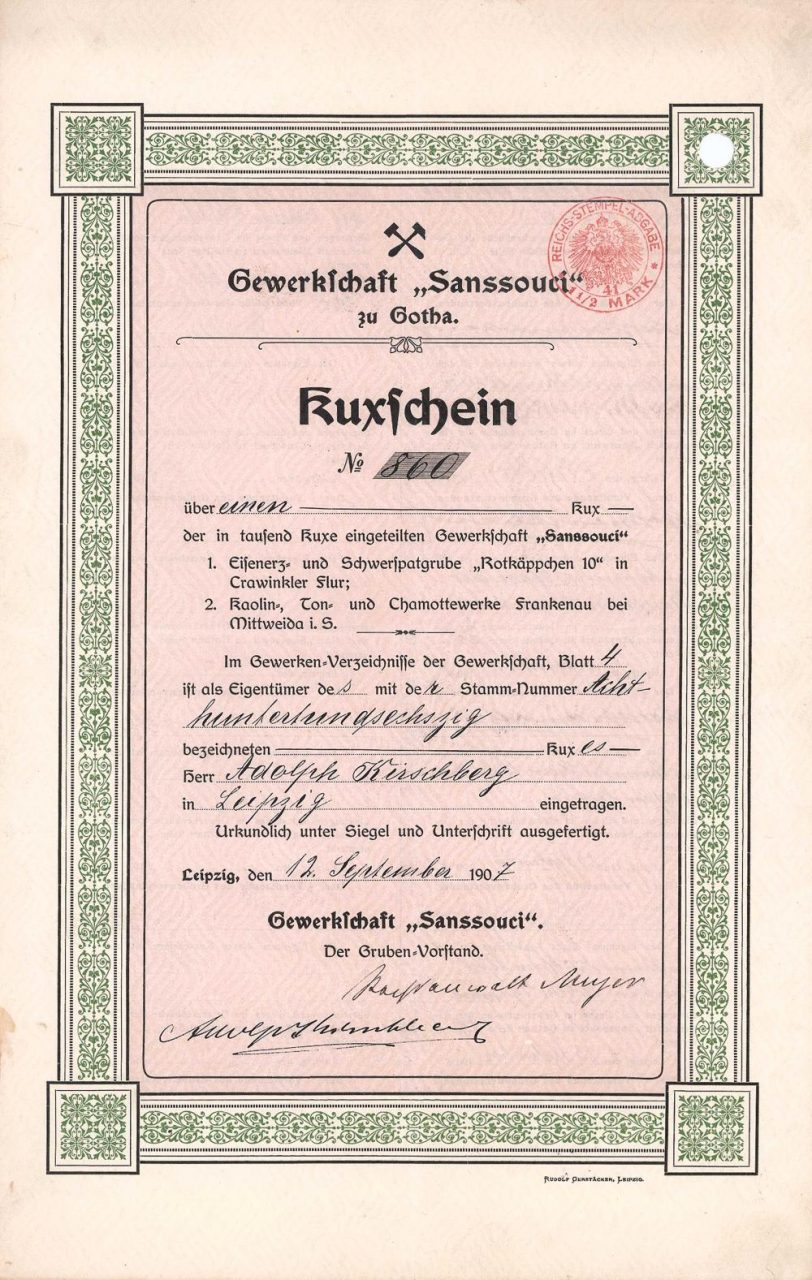 REICHS-STEMPEL-ABGABE
41
1 1/2 MARK
Gewerkſchaft „Sansſouci“
zu Gotha.
Kuxſchein
No 860
über einen Kux
der in tauſend Kuxe eingeteilten Gewerkſchaft „Sansſouci“
1. Eiſenerz- und Schwerſpatgrube „Rotkäppchen 10“ in
Crawinkler Flur;
2. Kaolin-, Ton- und Chamottewerke Frankenau bei
Mittweida i. S.
Im Gewerken-Verzeichniſſe der Gewerkſchaft, Blatt 4
iſt als Eigentümer des mit der Stamm-Nummer Acht-
hundertundsechszig
bezeichneten Kuxes
Herr Adolph Kirschberg
in Leipzig eingetragen.
Urkundlich unter Siegel und Unterſchrift ausgefertigt.
Leipzig, den 12. September 1907
Gewerkſchaft „Sansſouci“.
Der Gruben-Vorſtand.
Rechtsanwalt Meyer
RUDOLF GERSTÄCKER, LEIPZIG.